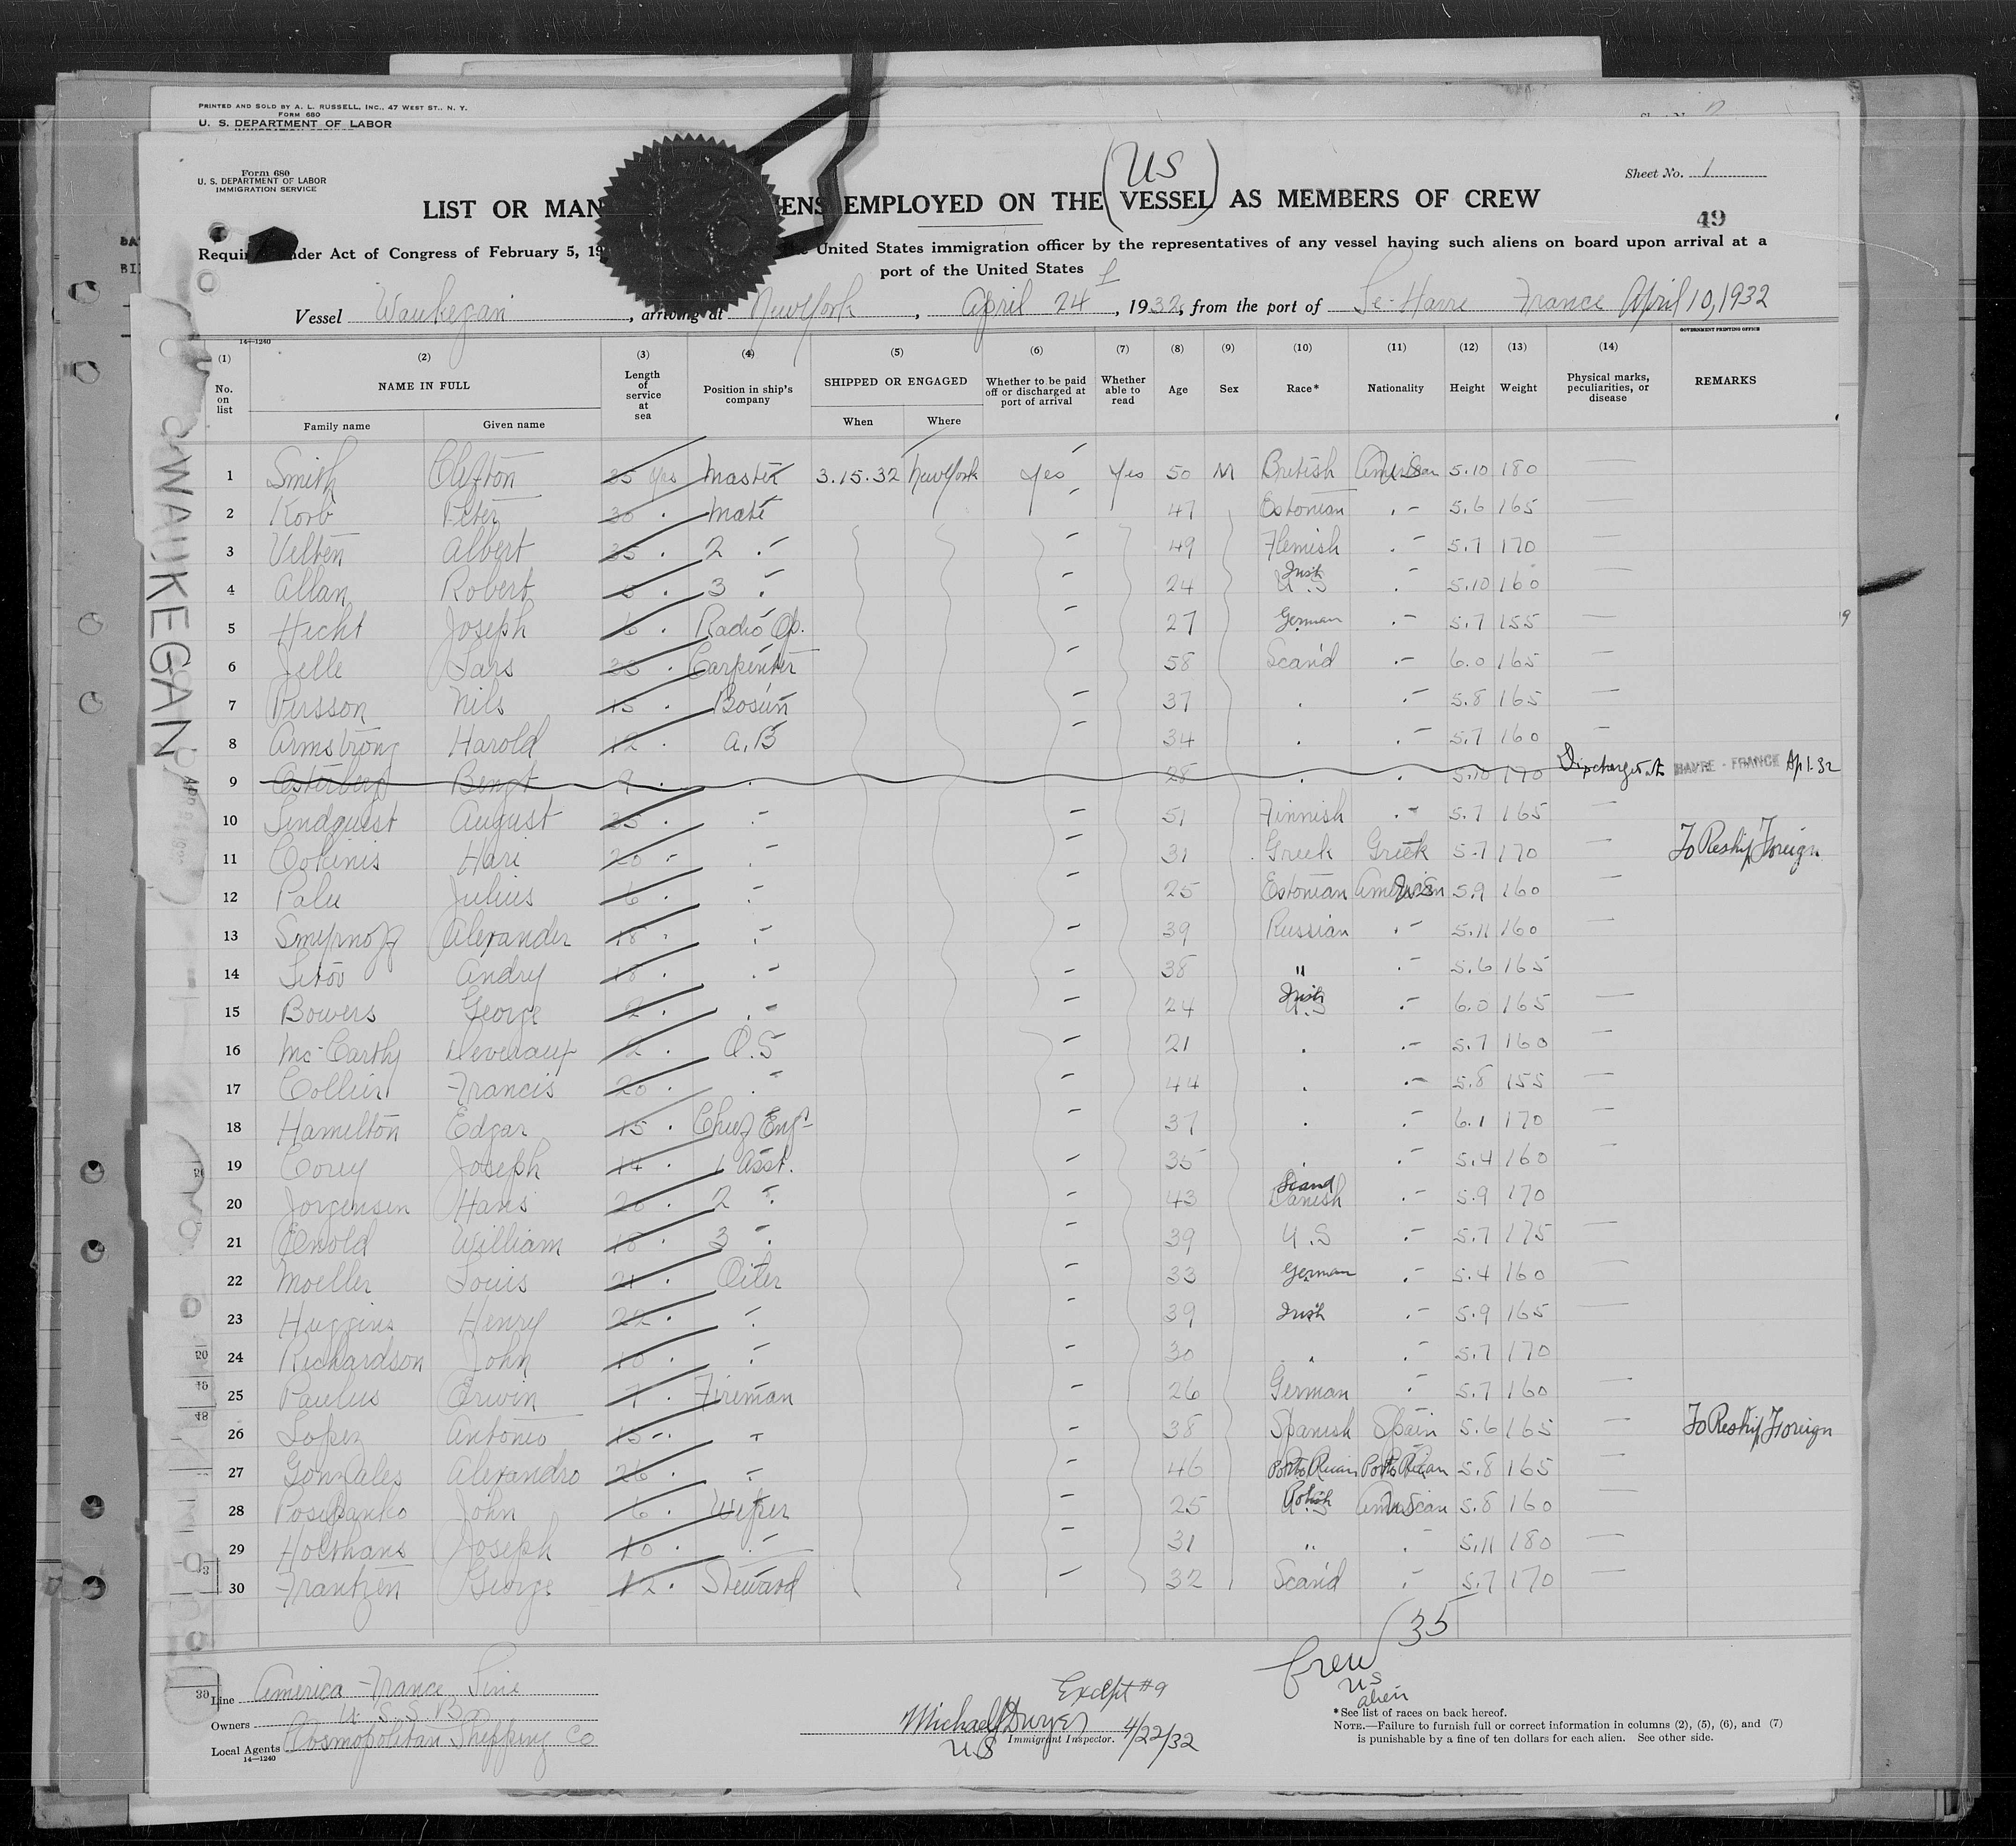 PRINTED AND SOLD BY A. L. RUSSELL, INC., 47 WEST ST., N. Y.
FORM 680
U. S. DEPARTMENT OF LABOR
Form 680
U. S. DEPARTMENT OF LABOR
IMMIGRATION SERVICE
(US)
Sheet No. 1
LIST OR MAN ENS EMPLOYED ON THE VESSEL AS MEMBERS OF CREW
49
Requi nder Act of Congress of February 5, 19 United States immigration officer by the representatives of any vessel having such aliens on board upon arrival at a
port of the United States
Vessel Waukegan, arriving at New York, April 24, 1932, from the port of Le-Havre France April 10, 1932
14—1240
GOVERNMENT PRINTING OFFICE
(1) (2) (3) (4) (5) (6) (7) (8) (9) (10) (11) (12) (13) (14)
No. on list NAME IN FULL Length of service at sea Position in ship's company SHIPPED OR ENGAGED Whether to be paid off or discharged at port of arrival Whether able to read Age Sex Race* Nationality Height Weight Physical marks, peculiarities, or disease REMARKS
Family name Given name When Where
1 Smith Clifton 35 yrs Master 3.15.32 New York Yes Yes 50 M British American 5.10 180 —
2 Korb Peter 30 . Mate 47 Estonian . - 5.6 165 —
3 Velten Albert 35 . 2 . - 49 Flemish . - 5.7 170 —
4 Allan Robert . 3 . 24 Irish U.S . 5.10 160 —
5 Hecht Joseph 6 . Radio Op. 27 German . - 5.7 155 —
6 Jelle Lars . Carpenter 58 Scand . - 6.0 165 —
7 Persson Nils 15 . Bosun 37 . . - 5.8 165 —
8 Armstrong Harold 12 . A.B 34 . . - 5.7 160 —
9 Osterberg Bengt 9 . . 28 . . 5.10 170 Discharged at HAVRE - FRANCE Ap 1-32
10 Lindquist August 35 . . - 51 Finnish . - 5.7 165 —
11 Cokinis Hari 20 - . - 31 Greek Greek 5.7 170 — To Reship Foreign
12 Palu Julius 6 . . - 25 Estonian American 5.9 160 —
13 Smyrnoff Alexander 18 . . - 39 Russian . - 5.11 160 —
14 Andry 18 . . - 38 " . - 5.6 165 —
15 Bowers George 2 . . - 24 Irish U.S . - 6.0 165 —
16 Mc-Carthy Deveraux 2 . O.S 21 . . - 5.7 160 —
17 Collier Francis 20 . . - 44 . . - 5.8 155 —
18 Hamilton Edgar 15 . Chief Eng. 37 . . - 6.1 170 —
19 Corey Joseph 14 . 1 Asst. 35 . . - 5.4 160 —
20 Jorgensen Hans 20 . 2 . 43 Scand Danish . - 5.9 170 —
21 William 18 . 3 . 39 U.S . - 5.7 175 —
22 Moeller Louis 21 . Oiler 33 German . - 5.4 160 —
23 Huggins Henry 22 . . 39 Irish . - 5.9 165 —
24 Richardson John 10 . . - 30 . . - 5.7 170 —
25 Paulus Erwin 7 . Fireman 26 German . - 5.7 160 —
26 Lopez Antonio 15 - . - 38 Spanish Spain 5.6 165 — To Reship Foreign
27 Gonzales Alexandro 26 . . - 46 Porto Rican Porto Rican 5.8 165 —
28 John 6 . Wiper 25 Polish American 5.8 160 —
29 Holthans Joseph 10 . . - 31 " . 5.11 180 —
30 Frantzen George 12 . Steward 32 Scand . - 5.7 170 —
35
Crew
US
alien
Line America-France Line
Owners U. S. S. B.
Local Agents Cosmopolitan Shipping Co
14—1240
Except #9
Michael J Dwyer 4/22/32
US Immigrant Inspector.
* See list of races on back hereof.
NOTE.—Failure to furnish full or correct information in columns (2), (5), (6), and (7)
is punishable by a fine of ten dollars for each alien. See other side.
WAUKEGAN